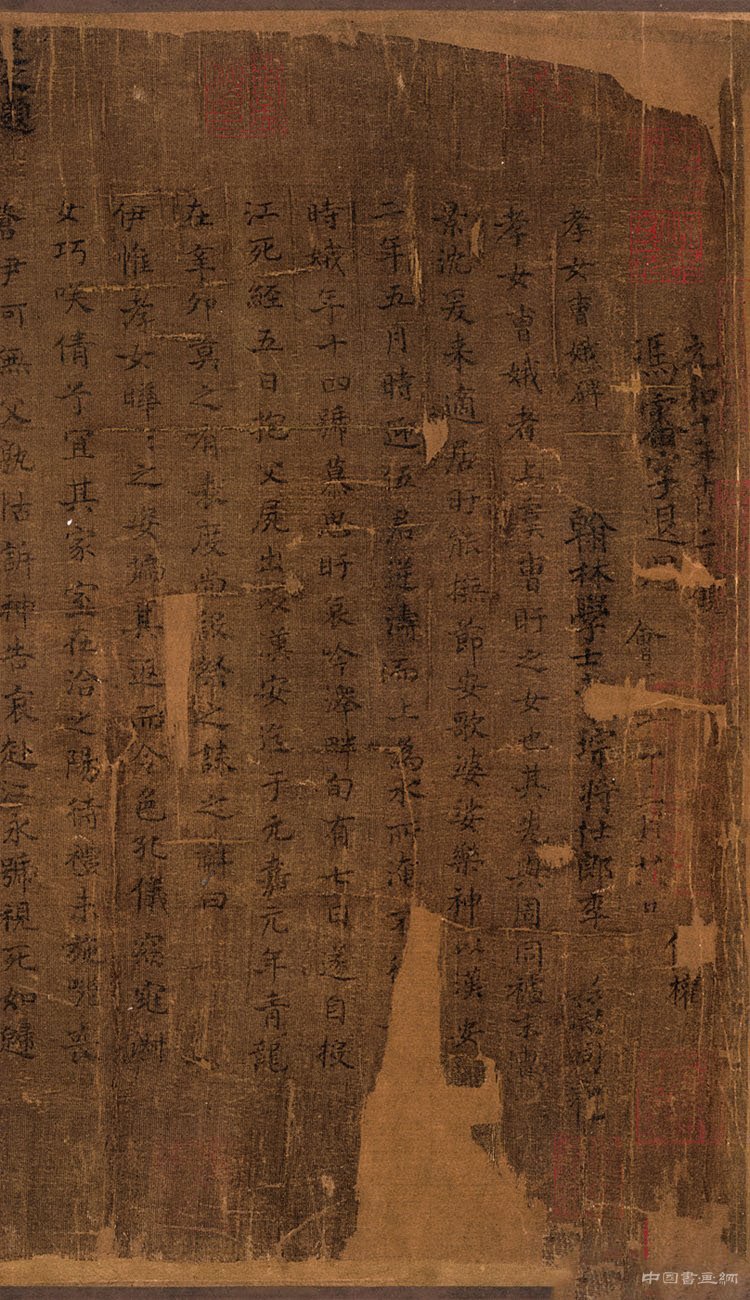 元和十年十月二
馮審字退
會
權
翰林學士
將仕郎李
孝女曹娥碑
孝女曹娥者上虞曹盱之女也其先與周同祖末冑
景沉爰来適居盱能撫節安歌婆娑樂神以漢安
二年五月時迎伍君逆濤而上為水所淹不
時娥年十四號慕思盱哀吟澤畔旬有七日遂自投
江死經五日抱父屍出以漢安迄于元嘉元年青龍
在辛卯莫之有表度尚設祭之誄之辭曰
伊惟孝女曄〻之姿偏其返而令色孔儀窈窕淑
女巧咲倩兮宜其家室在洽之陽待禮未施嗟喪
蒼尹可無父孰怙訴神告哀赴江永號視死如歸
之題
中国書画網